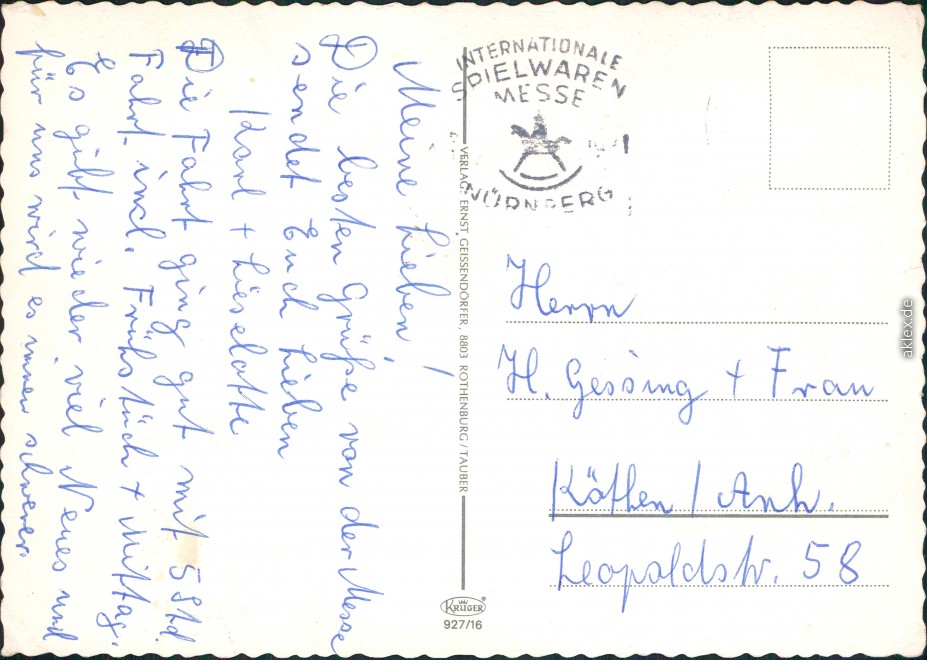 Meine Lieben!
Die besten Grüße von der Messe
sendet Euch Lieben
Karl + Lieselotte
Die Fahrt ging gut mit 5 Std.
Fahrt. incl. Frühstück + Mittag.
Es gibt wieder viel Neues und
für uns wird es immer schwerer.
INTERNATIONALE
SPIELWAREN
MESSE
NÜRNBERG
VERLAG ERNST GEISSENDÖRFER, 8803 ROTHENBURG / TAUBER
KRÜGER
927/16
Herrn
H. Gessing + Frau
Köthen / Anh.
Leopoldstr. 58
akpool.de